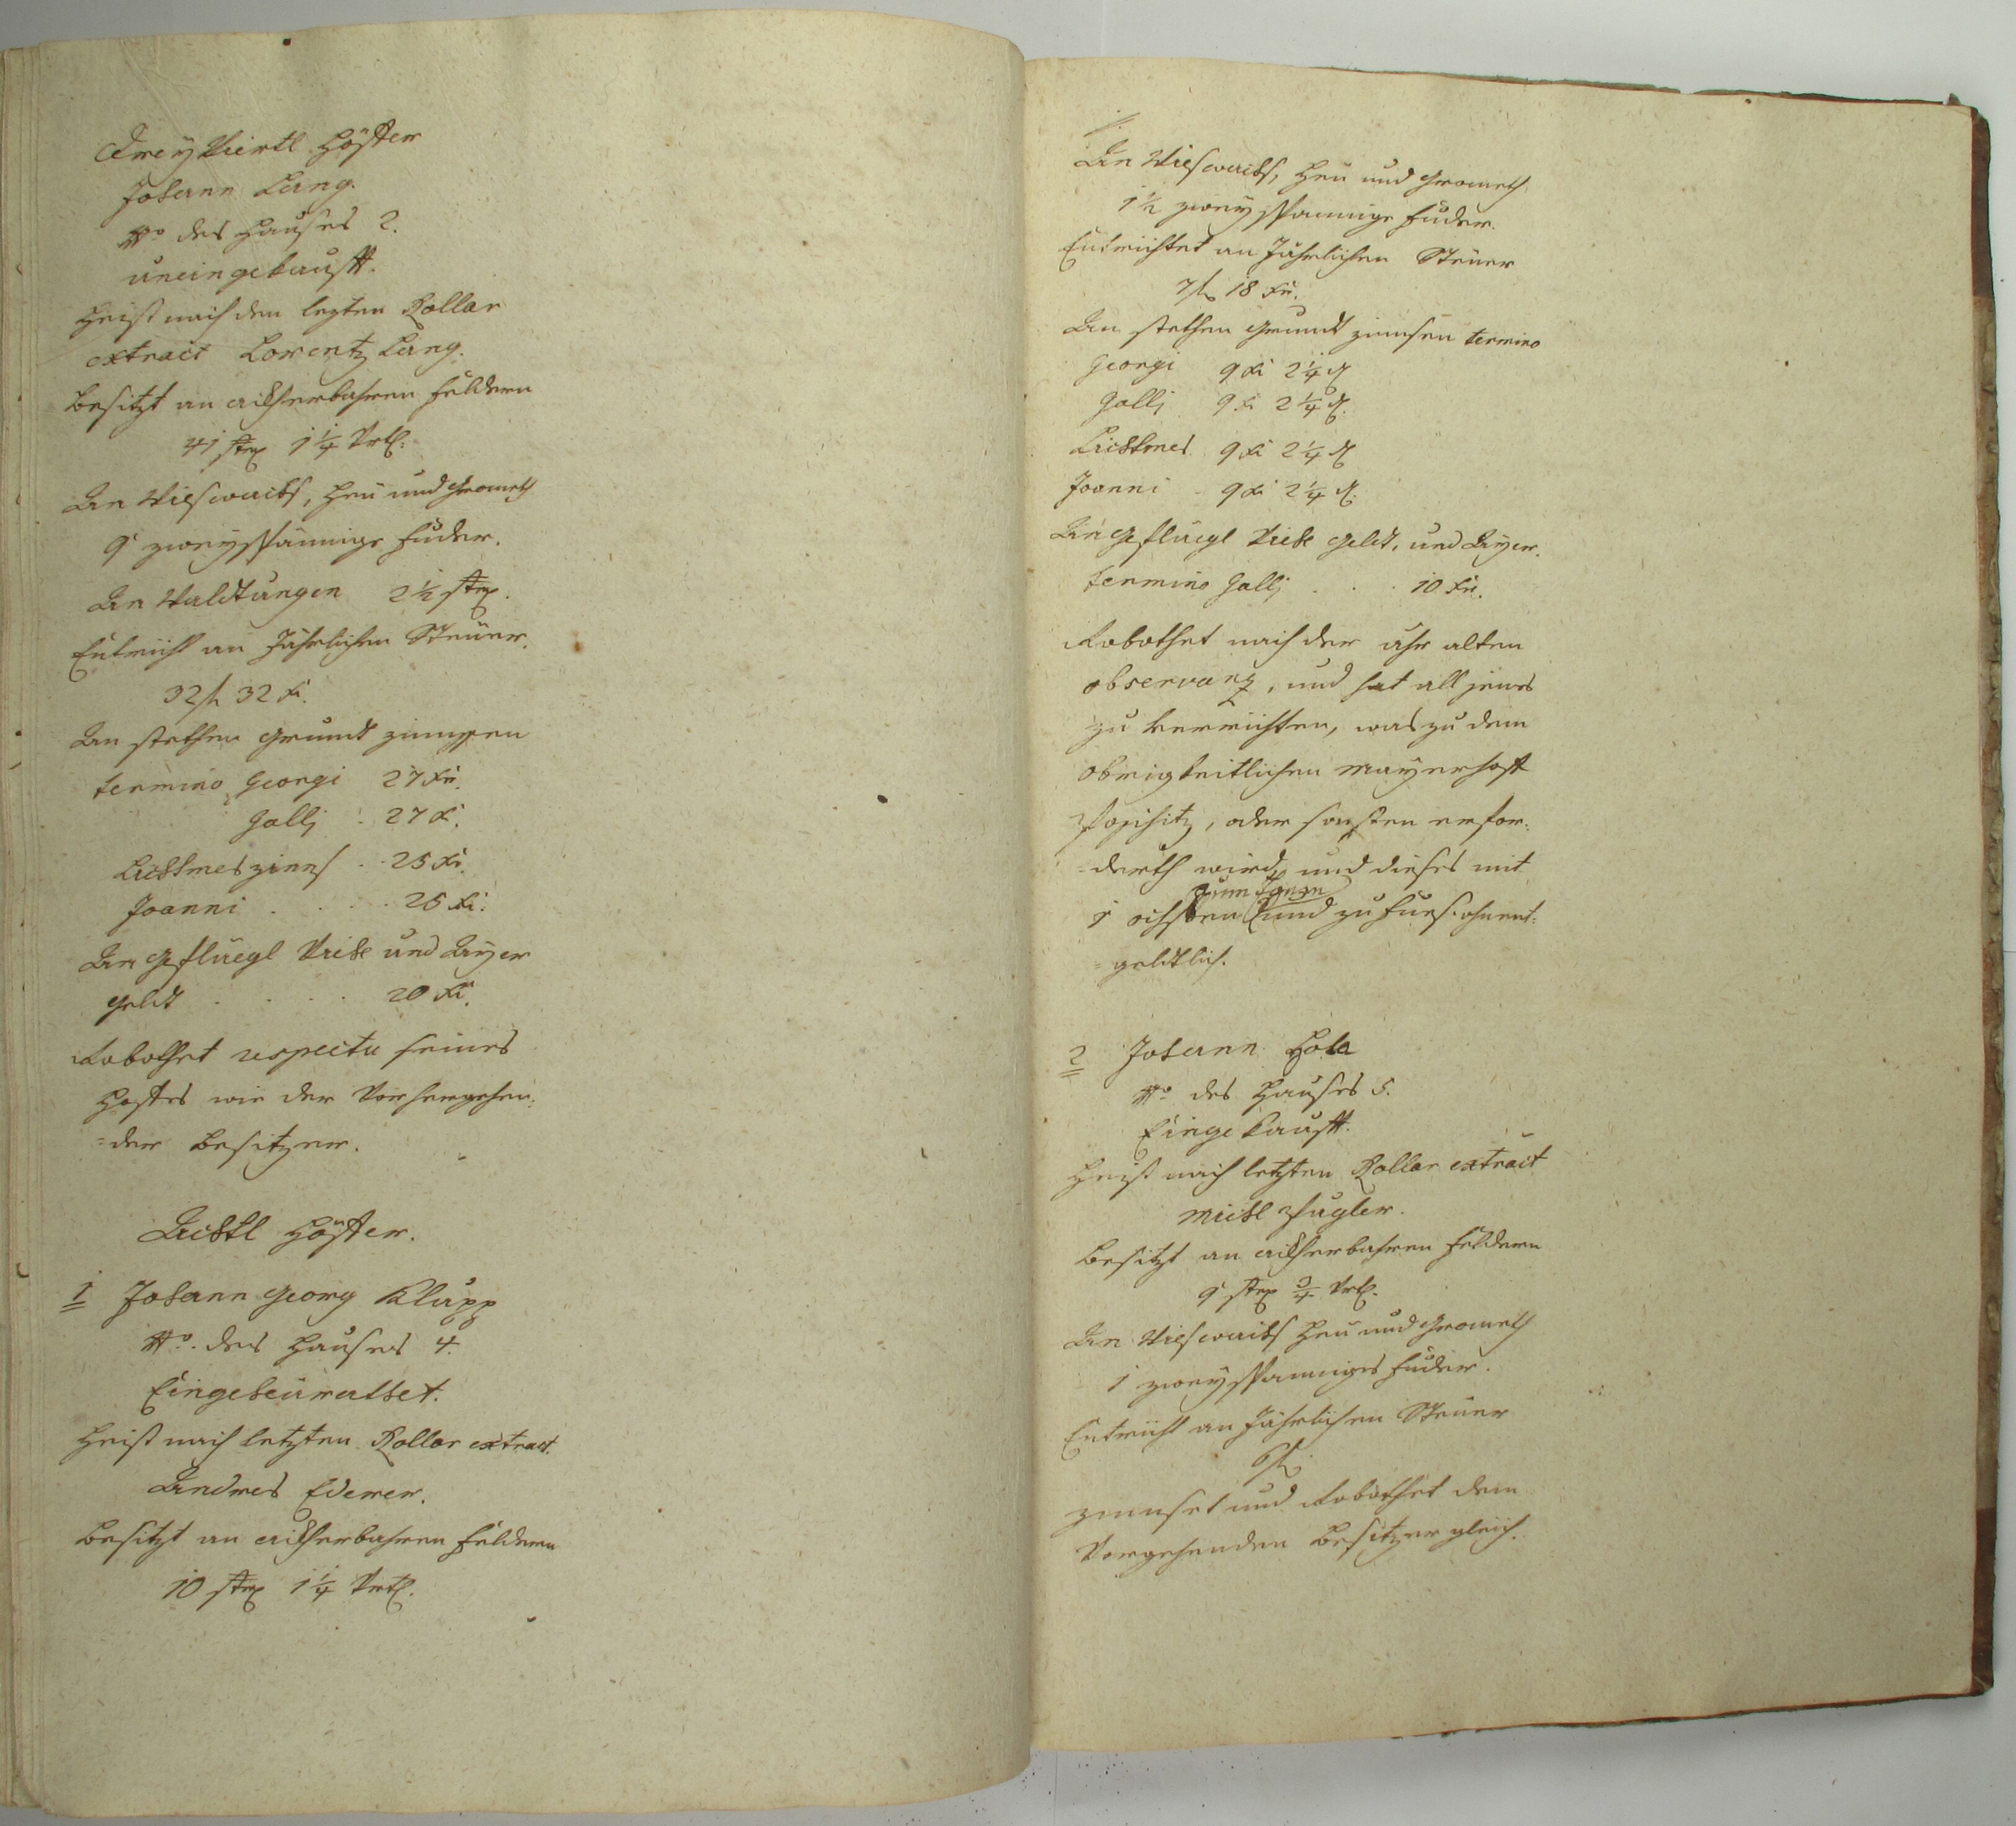 Dreÿ Viertl Höffter
Johann Lang.
Nro des Hauses 2.
uneingekaufft.
Heist nach den lezten Rollar
extract Lorentz Lang.
Besitzt an ackherbahren feldern
41 strχ 1 1/4 Vrtl:
An Wieswachs, Heü und Grometh
9 zweÿspännige fuder.
An Waldtungen 2 1/2 strχ.
Entricht an Jährlichen Steüer.
32 fl 32 Kr.
An stethen Grundt zinnßen
termino Georgi 27 Kr.
Gallj : 27 Kr.
Lichtmeszinnß . . 25 Kr.
Joanni . . . . 25 Kr.
An Gefluegl Viehe und Aÿer
Geldt . . . . 20 Kr.
Robothet respectu seines
Hoffes wie der Vorhergehen:
=der Besitzer.
Achtl Höffter.
1 Johann Georg Klupp
Nro. des Hauses 4.
Eingeheürathet.
Heist nach letzten Rollar extract.
Andres Ederer.
Besitzt an ackherbahren feldern
10 strχ 1 1/4 Vrtl.
An Wieswachs, Heü und Grometh
1 1/2 zweÿspannige fuder.
Entrichtet an Jährlichen Steüer
7 fl 18 Kr.
An stethen Grundt zinnsen termino
Georgi 9 Kr 2 1/4 ₰
Gallj 9 Kr 2 1/4 ₰.
Lichtmes 9 Kr 2 1/4 ₰
Joanni . 9 Kr 2 1/4 ₰.
An Gefluegl Viehe Geldt, und Aÿer.
termino Gallj . . . 10 Kr.
Robothet nach der uhr alten
observanz, und hat all jenes
zu verrichten, was zu dem
obrigkeitlichen Maÿerhoff
, oder sonsten erfor:
=derth wird, und dieses mit
zum
1 ochsen und zu fues ohnent:
=geldtlich.
2 Johann Hola
Nro des Hauses 5.
Eingekaufft.
Heist nach letzten Rollar extract
Michl
Besitzt an ackherbahren feldern
9 strχ 3/4 Vrtl.
An Wieswachs Heü und Grometh
1 zweÿspanniges fuder.
Entricht an Jährlichen Steüer
6 fl.
zinnset und Robothet dem
Vorgehenden Besitzer gleich.